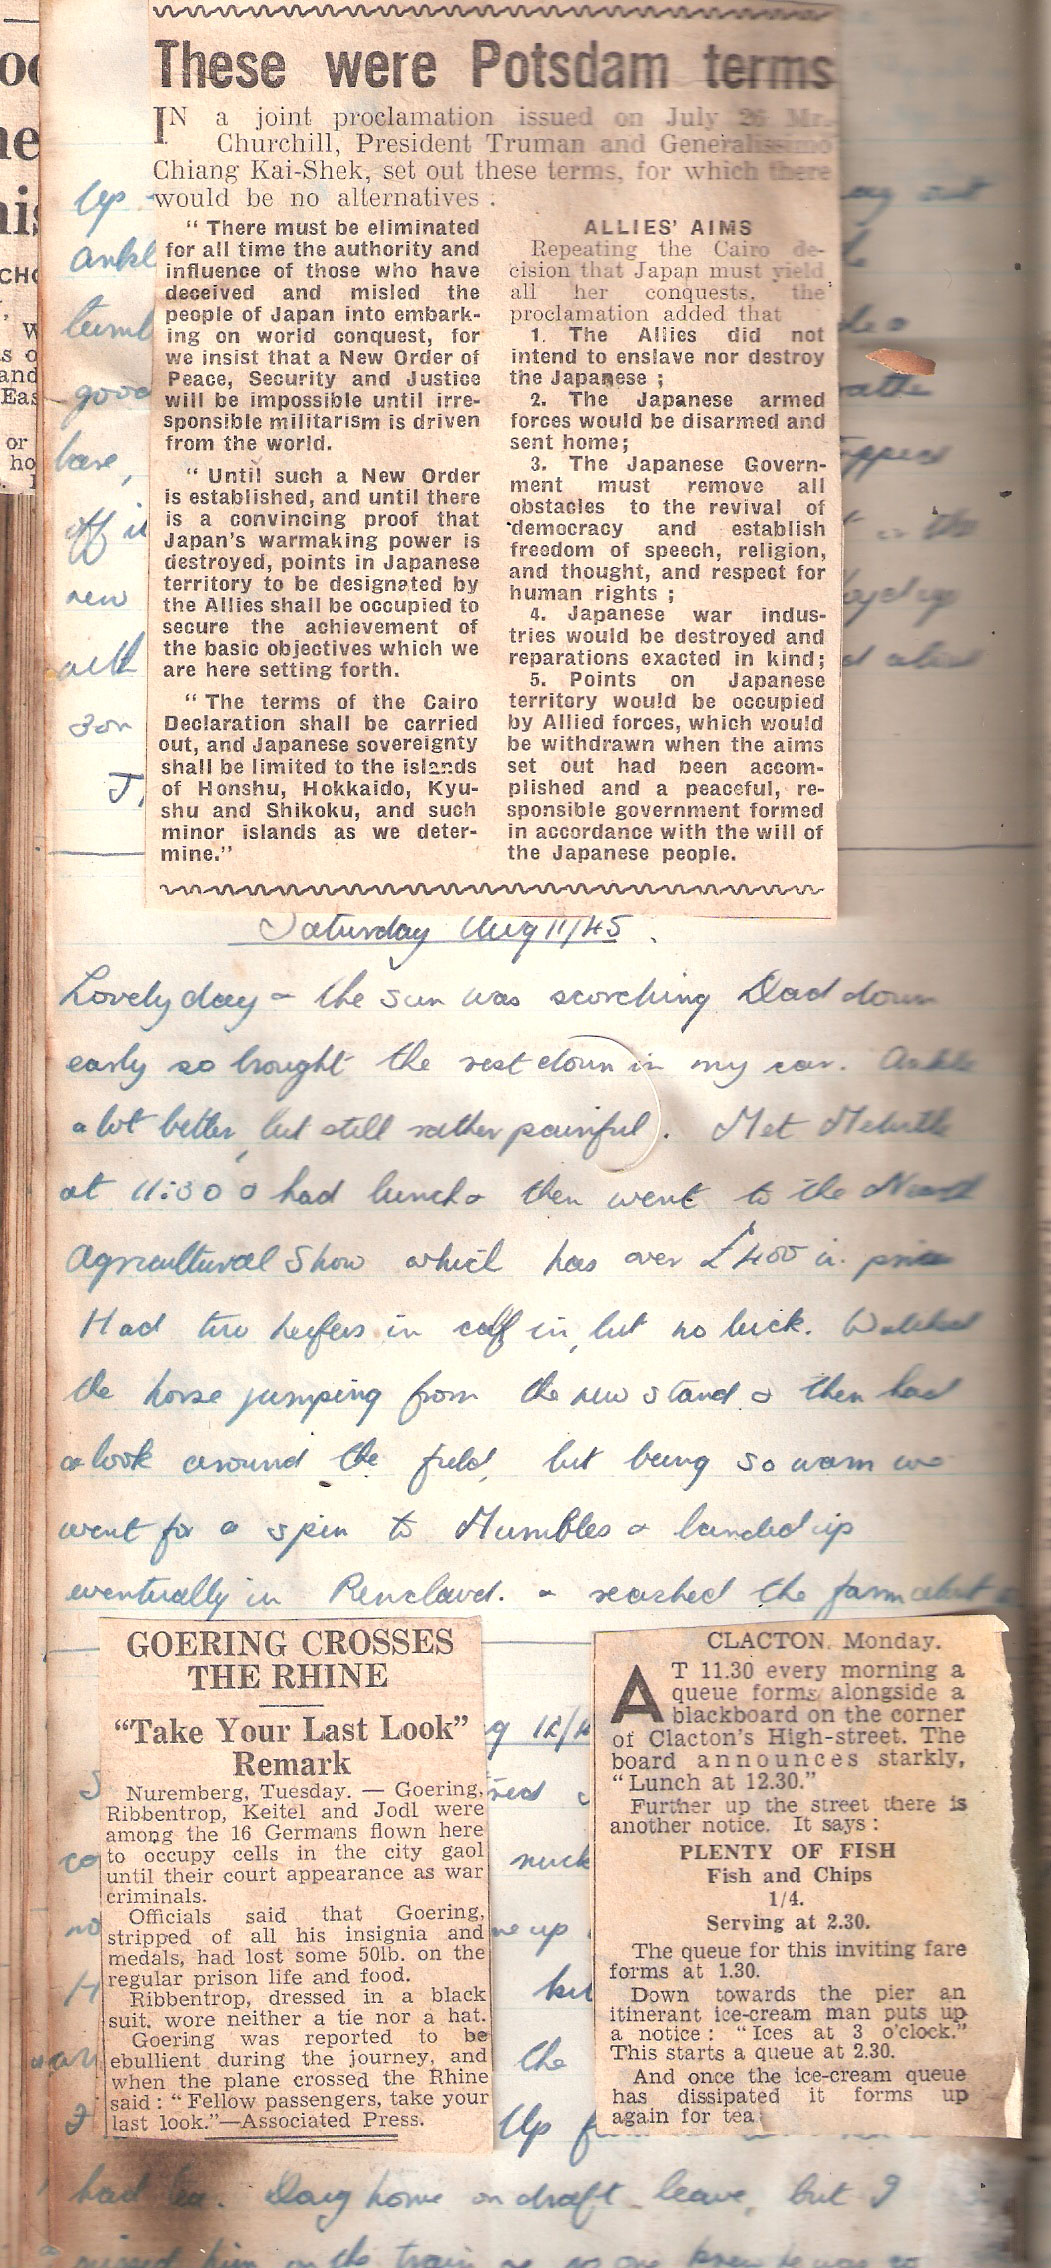 These were Potsdam terms
IN a joint proclamation issued on July 26 Mr.
Churchill, President Truman and Generalissimo
Chiang Kai-Shek, set out these terms, for which there
would be no alternatives :
" There must be eliminated
for all time the authority and
influence of those who have
deceived and misled the
people of Japan into embark-
ing on world conquest, for
we insist that a New Order of
Peace, Security and Justice
will be impossible until irre-
sponsible militarism is driven
from the world.
" Until such a New Order
is established, and until there
is a convincing proof that
Japan's warmaking power is
destroyed, points in Japanese
territory to be designated by
the Allies shall be occupied to
secure the achievement of
the basic objectives which we
are here setting forth.
" The terms of the Cairo
Declaration shall be carried
out, and Japanese sovereignty
shall be limited to the islands
of Honshu, Hokkaido, Kyu-
shu and Shikoku, and such
minor islands as we deter-
mine."
ALLIES' AIMS
Repeating the Cairo de-
cision that Japan must yield
all her conquests, the
proclamation added that
1. The Allies did not
intend to enslave nor destroy
the Japanese ;
2. The Japanese armed
forces would be disarmed and
sent home;
3. The Japanese Govern-
ment must remove all
obstacles to the revival of
democracy and establish
freedom of speech, religion,
and thought, and respect for
human rights ;
4. Japanese war indus-
tries would be destroyed and
reparations exacted in kind;
5. Points on Japanese
territory would be occupied
by Allied forces, which would
be withdrawn when the aims
set out had been accom-
plished and a peaceful, re-
sponsible government formed
in accordance with the will of
the Japanese people.
Up
good
off
new
Saturday Aug 11/45.
Lovely day & the sun was scorching Dad down
early so brought the rest down in my car. Ankle
a lot better, but still rather painful. Met
at 11:30 & had lunch & then went to the
Agricultural Show which has over £400 in
Had two heifers in calf in, but no luck. Watched
the horse jumping from the new stand & then had
a look around the field, but being so warm we
went for a spin to Mumbles & landed up
eventually in Penclawd. & reached the farm about
GOERING CROSSES
THE RHINE
"Take Your Last Look"
Remark
Nuremberg, Tuesday. — Goering,
Ribbentrop, Keitel and Jodl were
among the 16 Germans flown here
to occupy cells in the city gaol
until their court appearance as war
criminals.
Officials said that Goering,
stripped of all his insignia and
medals, had lost some 50lb. on the
regular prison life and food.
Ribbentrop, dressed in a black
suit, wore neither a tie nor a hat.
Goering was reported to be
ebullient during the journey, and
when the plane crossed the Rhine
said : " Fellow passengers, take your
last look."—Associated Press.
CLACTON, Monday.
AT 11.30 every morning a
queue forms alongside a
blackboard on the corner
of Clacton's High-street. The
board announces starkly,
" Lunch at 12.30."
Further up the street there is
another notice. It says :
PLENTY OF FISH
Fish and Chips
1/4.
Serving at 2.30.
The queue for this inviting fare
forms at 1.30.
Down towards the pier an
itinerant ice-cream man puts up
a notice : " Ices at 3 o'clock."
This starts a queue at 2.30.
And once the ice-cream queue
has dissipated it forms up
again for tea.
the
Up
had tea. Doug home on draft leave, but I
missed him on the train as no one knew he was